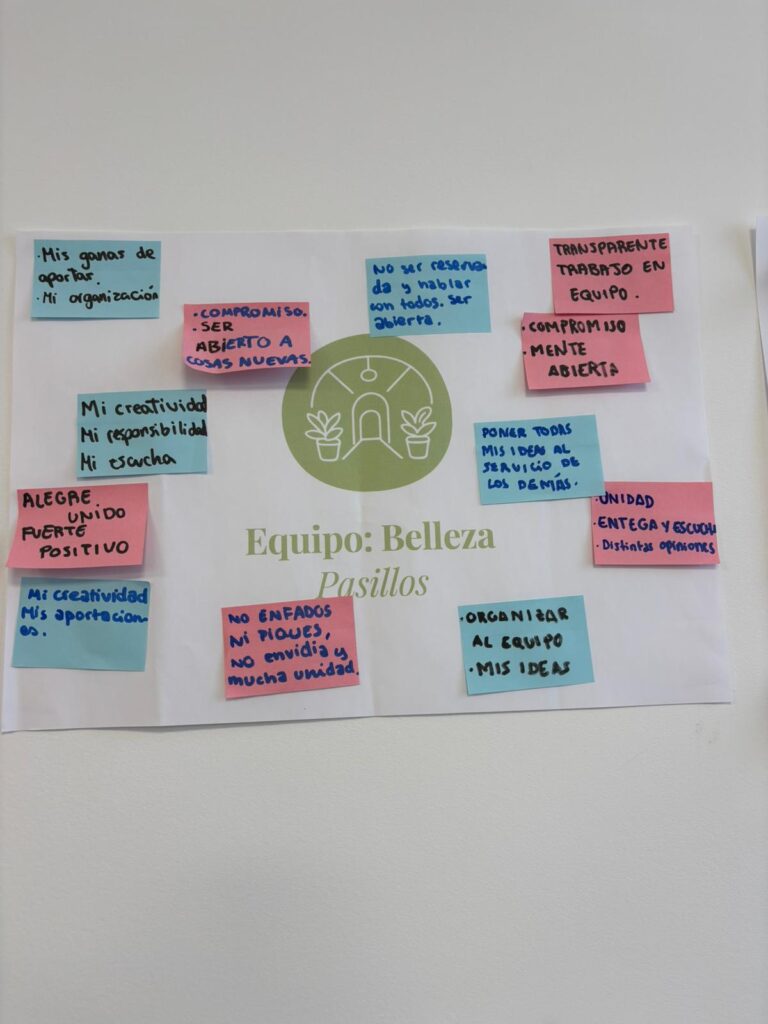 ·Mis ganas de
aportar.
·Mi organización
·COMPROMISO.
·SER
ABIERTO A
COSAS NUEVAS.
NO SER RESERVA
DA y HABLAR
con todos. Ser
abierta.
TRANSPARENTE
TRABAJO EN
EQUIPO.
·COMPROMISO
·MENTE
ABIERTA
Mi creatividad
Mi responsibilidad
Mi escucha
PONER TODAS
MIS IDEAS AL
SERVICIO DE
LOS DEMÁS.
ALEGRE
UNIDO
FUERTE
POSITIVO
·UNIDAD
·ENTEGA Y ESCUCHA
·Distintas opiniones
Equipo: Belleza
Pasillos
Mi creatividad
Mis aportacion-
es.
NO ENFADOS
Ni PIQUES,
NO envidia y
mucha unidad.
·ORGANIZAR
AL EQUIPO
·MIS IDEAS